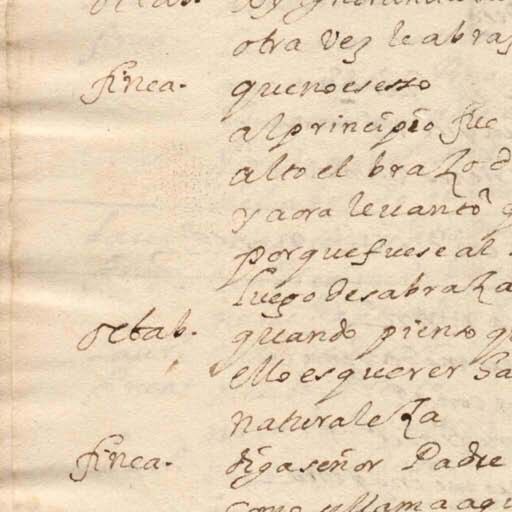 otra vez le abraz
finea. que no es esso
al principio fue
alto el brazo d
y aora leuantô q
porque fuese al
luego desabraza
octab. quando pienso qu
ello es querer sa
naturaleza
finea. diga señor Padre
como llama aqu